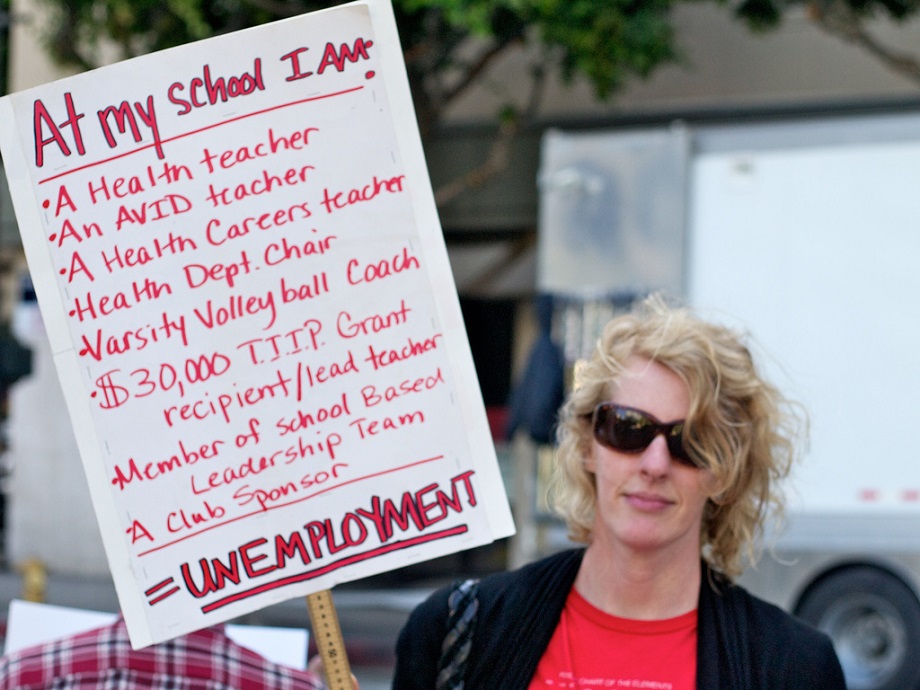 At my school I AM:
• A Health teacher
• An AVID teacher
• A Health Careers teacher
• Health Dept. Chair
• Varsity Volleyball Coach
• $30,000 T.I.I.P. Grant
recipient/lead teacher
• Member of school Based
Leadership Team
• A Club Sponsor
= UNEMPLOYMENT
CHART OF THE ELEMENTS